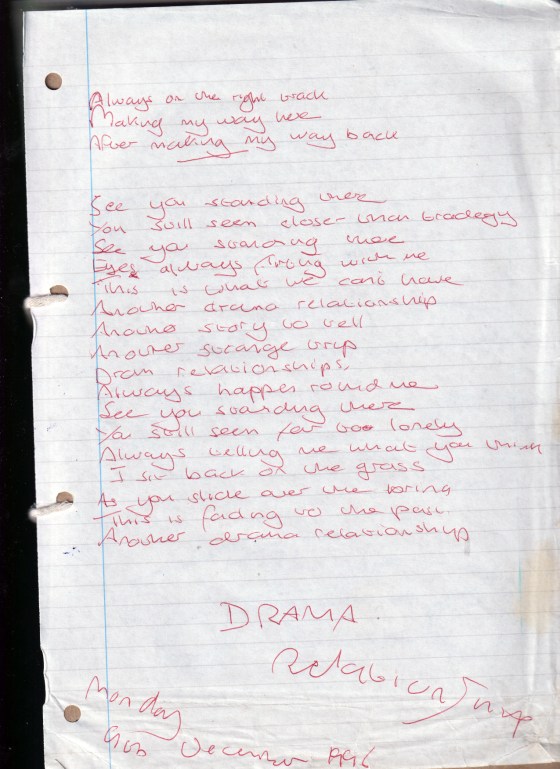 Always on the right track
Making my way here
After making my way back
See you standing there
You still seen closer than tradegy
See you standing there
Eyes always with me
This is what we cant have
Another drama relationship
Another story to tell
Another strange trip
Dram relationships.
Always happen round me
See you standing there
You still seen far too lonely
Always telling me what you think
I sit back on the grass
As you slide over the
This is fading to the past.
Another drama relationship
DRAMA
Relationship
Monday
9th December 1996